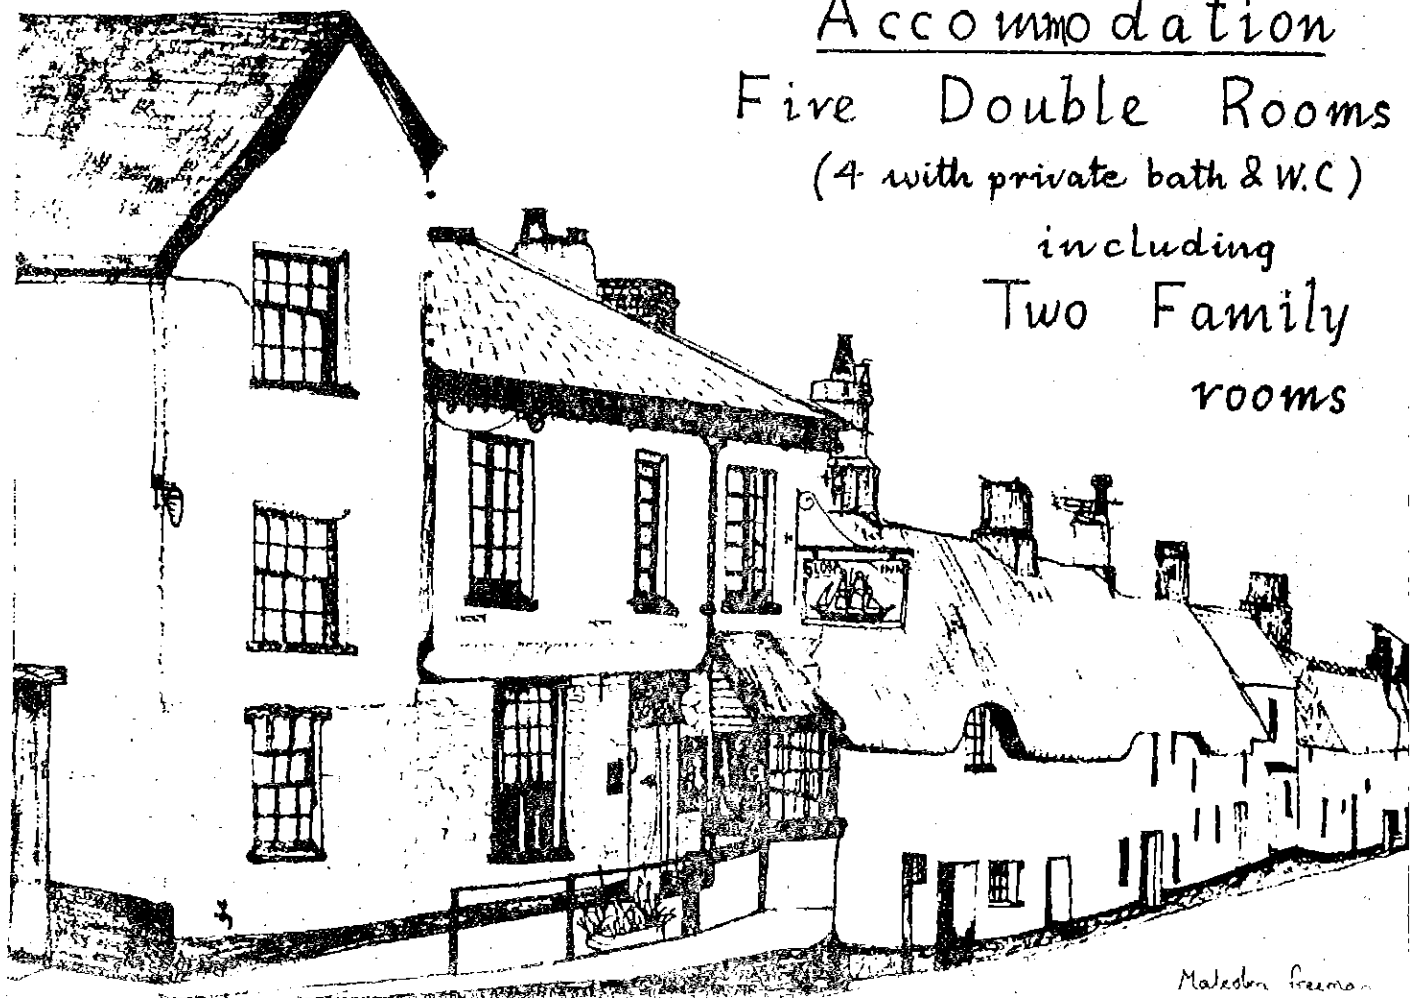 Accommodation
Five Double Rooms
(4 with private bath & W.C)
including
Two Family
rooms
INN
Malcolm Freeman